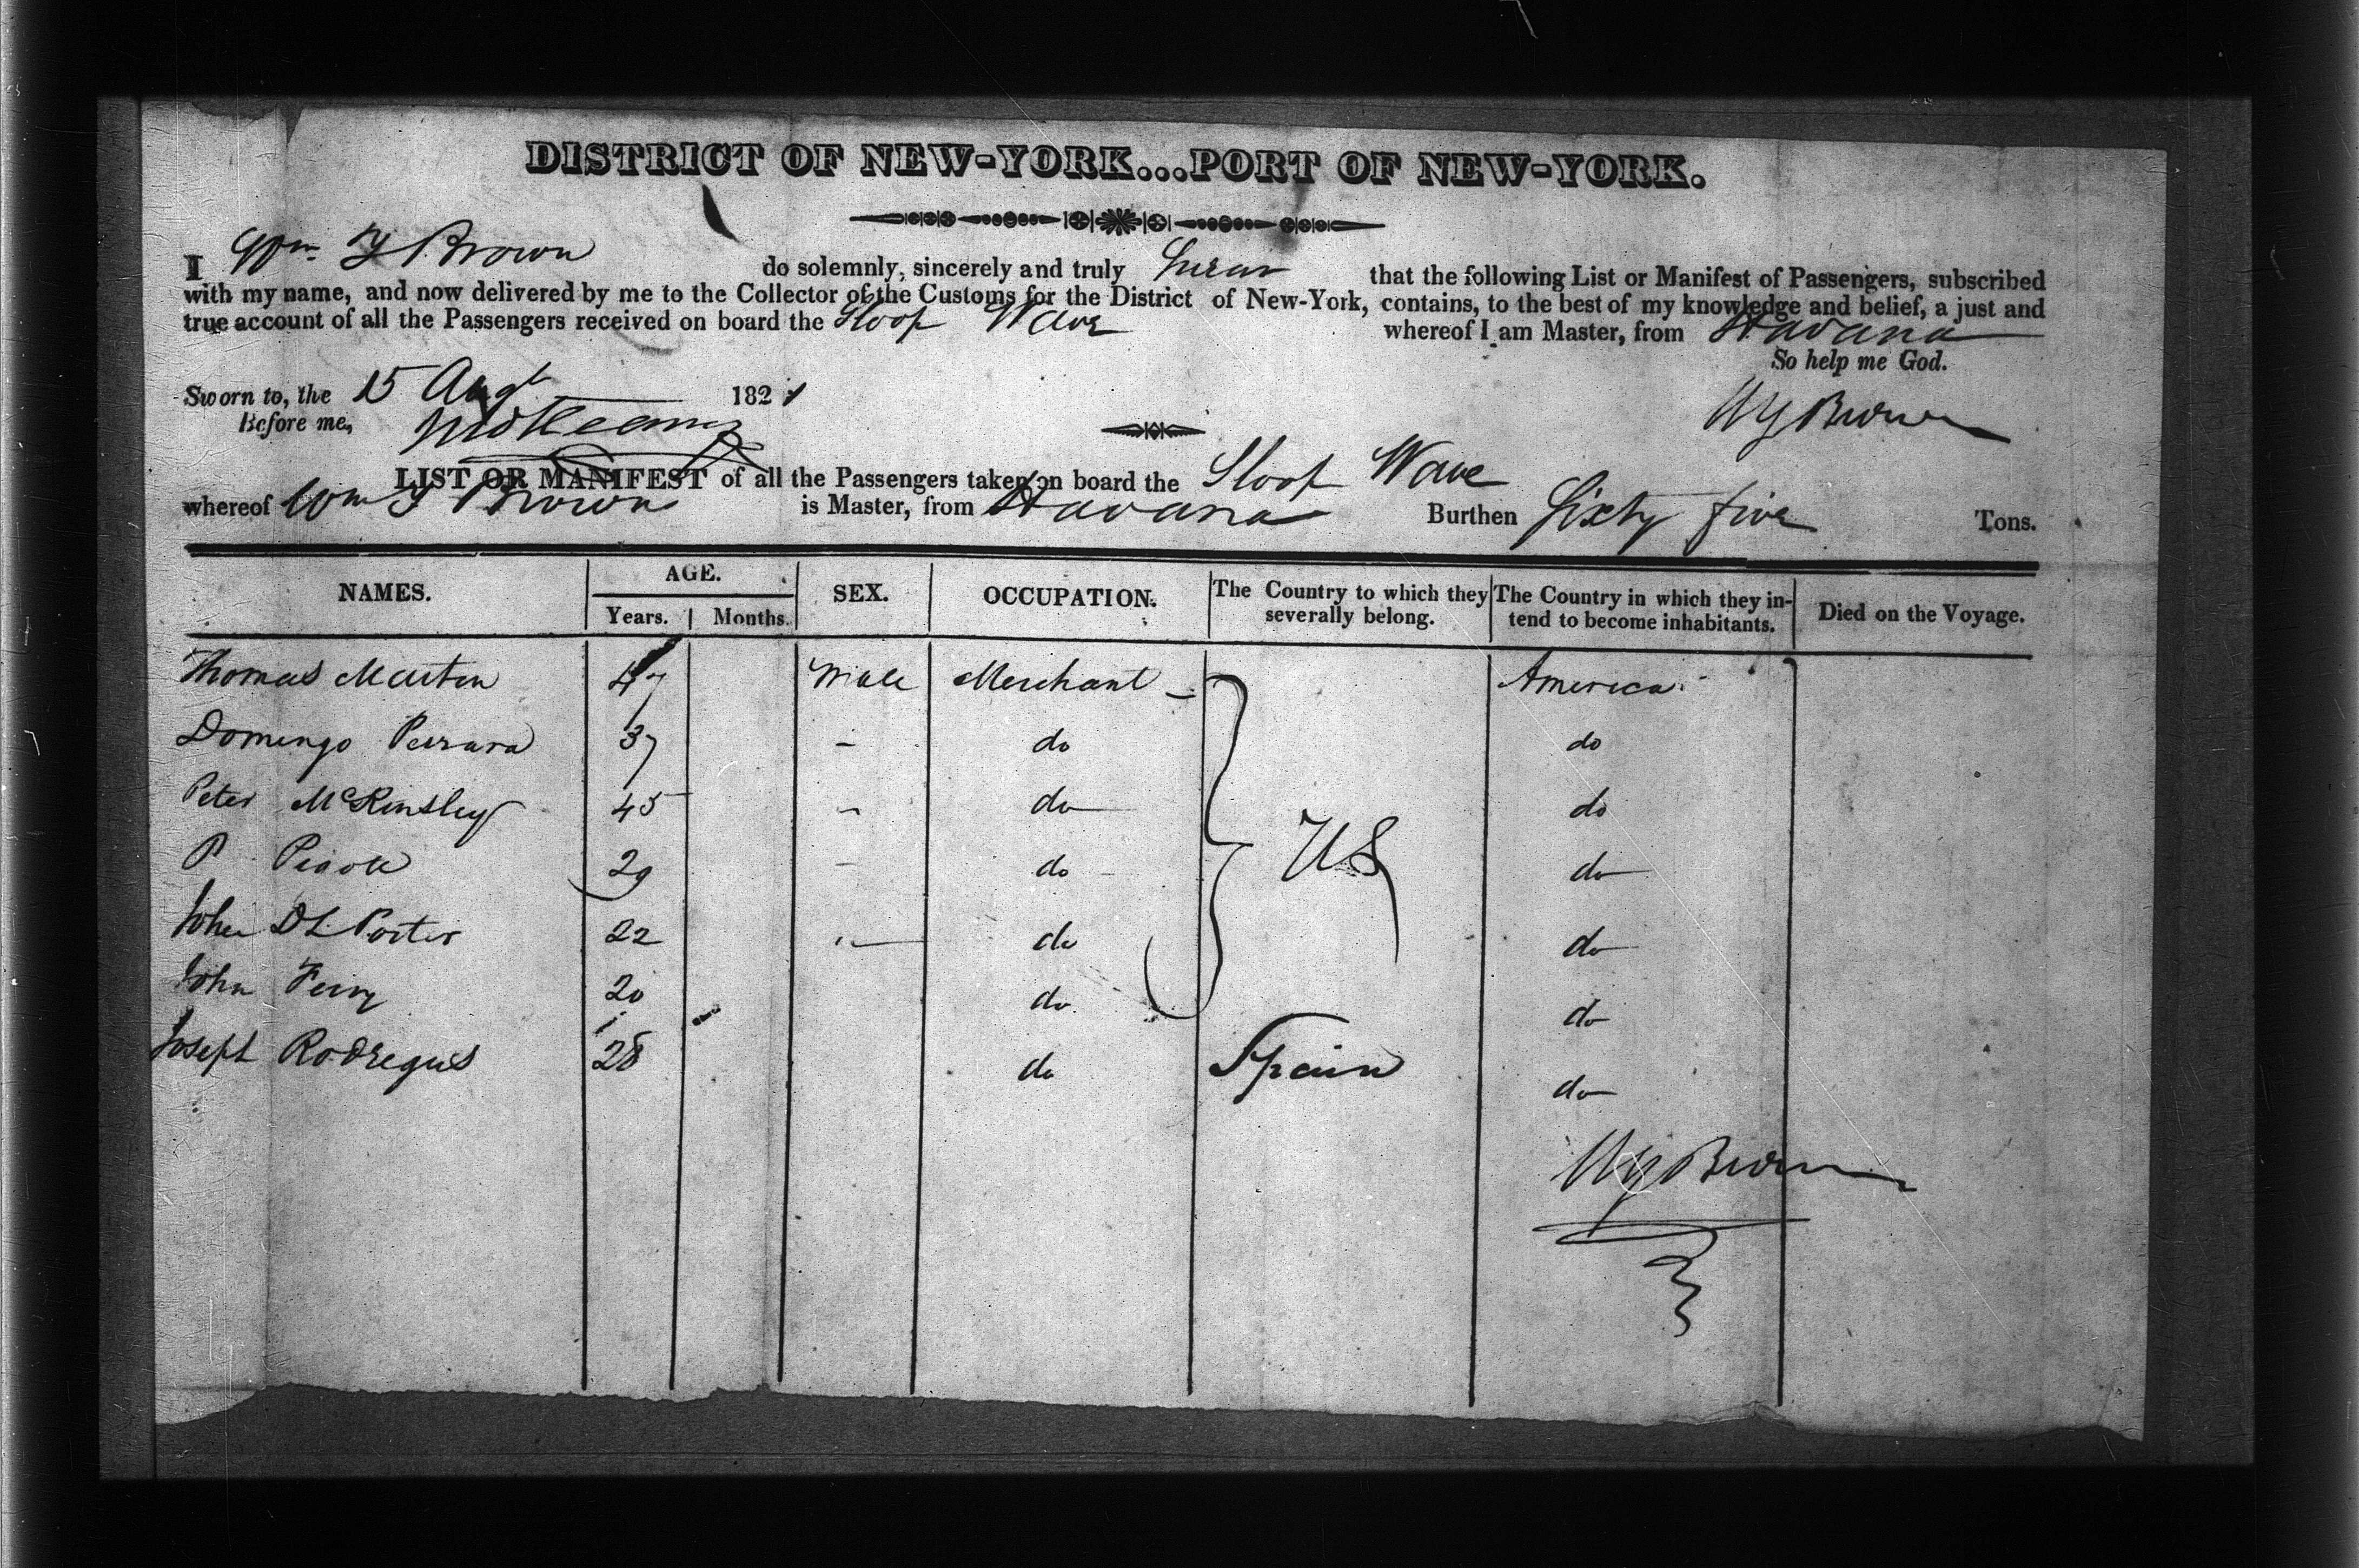 DISTRICT OF NEW-YORK...PORT OF NEW-YORK.
I Wm Y Brown do solemnly, sincerely and truly Swear that the following List or Manifest of Passengers, subscribed
with my name, and now delivered by me to the Collector of the Customs for the District of New-York, contains, to the best of my knowledge and belief, a just and
true account of all the Passengers received on board the Sloop Wave whereof I am Master, from Havana
So help me God.
Sworn to, the 15 Augt 1821
Before me,
WY Brown
LIST OR MANIFEST of all the Passengers taken on board the Sloop Wave
whereof Wm Y Brown is Master, from Havana Burthen Sixty five Tons.
NAMES. AGE. SEX. OCCUPATION. The Country to which they severally belong. The Country in which they intend to become inhabitants. Died on the Voyage.
Years. Months.
Thomas Martin 47 Male Merchant America
Domingo Perrara 37 - do do
Peter McKinsley 45 - do do
P 29 - do US do
John DL Porter 22 - do do
John Ferry 20 do do
Joseph Rodregus 28 do Spain do
WY Brown